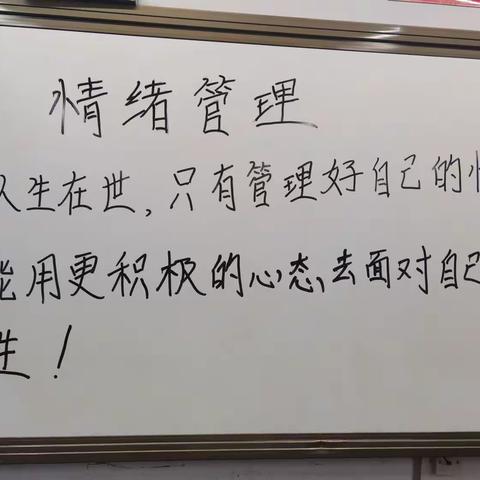 情绪管理
人生在世，只有管理好自己的情
能用更积极的心态，去面对自己
生！